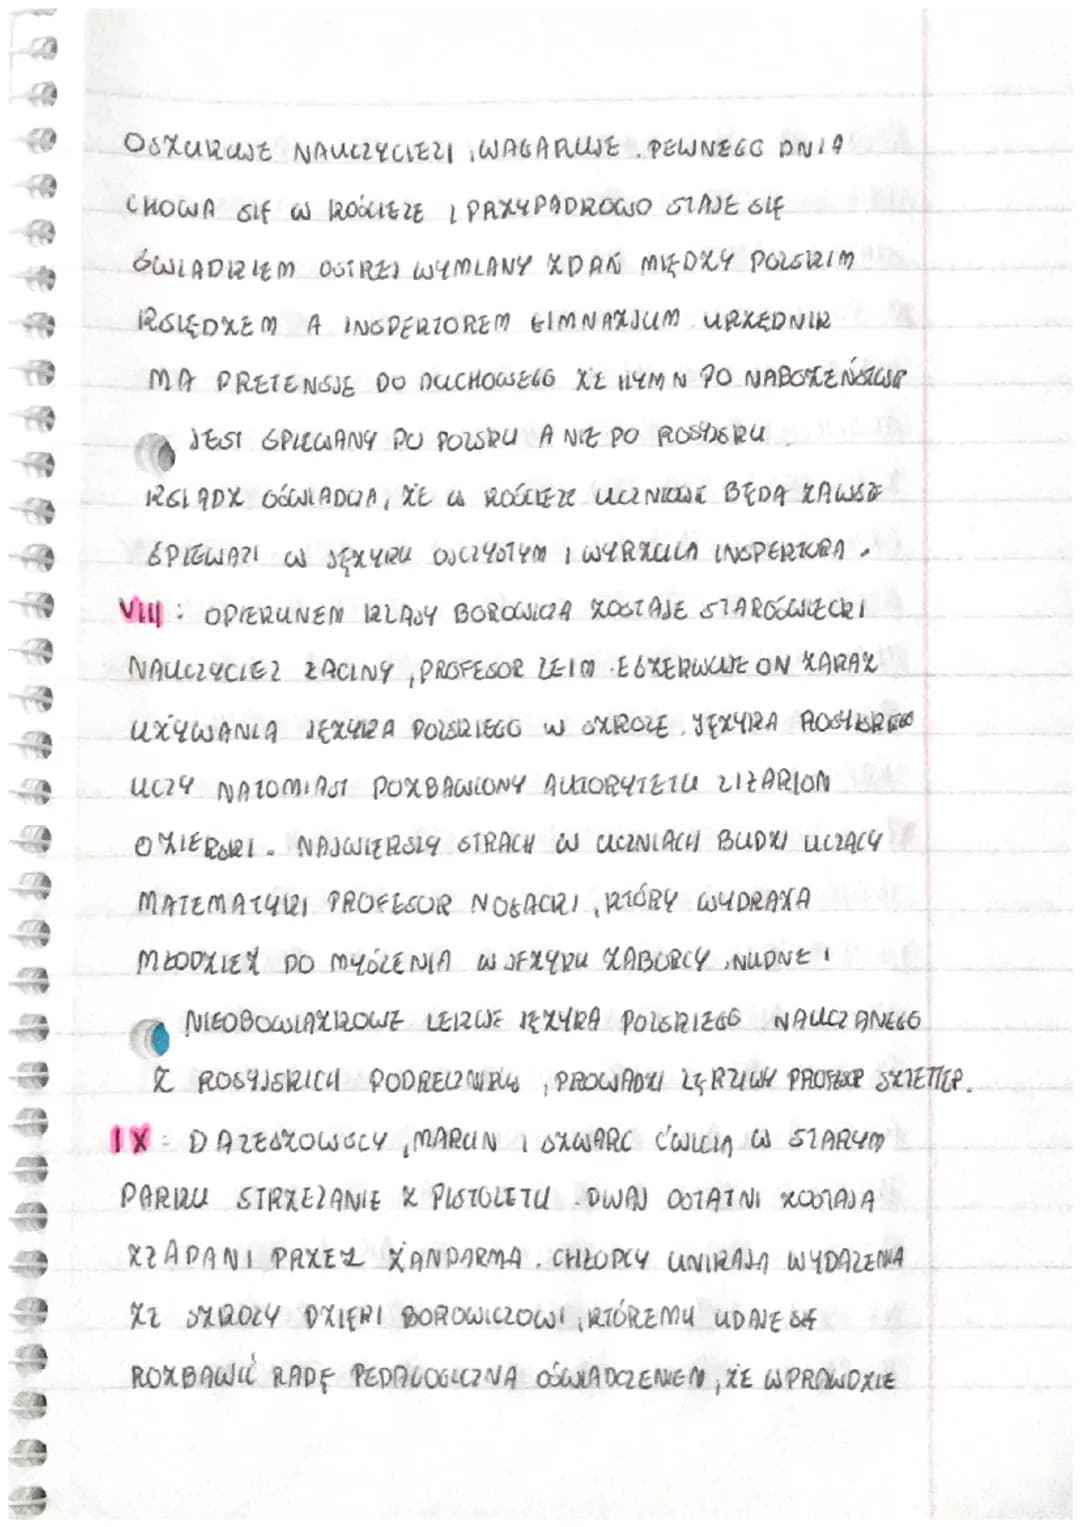 OSZUKUJE NAUCZYCIELI, WAGARUJE. PEWNEGO DNIA
CHOWA SIĘ W KOŚCIELE I PRZYPADKOWO STAJE SIĘ
ŚWIADKIEM OSTREJ WYMIANY ZDAŃ MIĘDZY POLSKIM
KSIĘDZEM A INSPEKTOREM GIMNAZJUM. URZĘDNIK
MA PRETENSJE DO DUCHOWEGO ŻE HYMN PO NABOŻEŃSTWIE
JEST ŚPIEWANY PO POLSKU A NIE PO ROSYJSKU.
KSIĄDZ OŚWIADCZA, ŻE W KOŚCIELE UCZNIOWIE BĘDĄ ZAWSZE
ŚPIEWALI W JĘZYKU OJCZYSTYM I WYRZUCA INSPEKTORA.
VIII: OPIEKUNEM KLASY BOROWICZA ZOSTAJE STAROŚWIECKI
NAUCZYCIEL ŁACINY, PROFESOR LEIM. EGZEKWUJE ON ZAKAZ
UŻYWANIA JĘZYKA POLSKIEGO W SZKOLE. JĘZYKA ROSYJSKIEGO
UCZY NATOMIAST POZBAWIONY AUTORYTETU ILARION
OZIERSKI. NAJWIĘKSZY STRACH W UCZNIACH BUDZI UCZĄCY
MATEMATYKI PROFESOR NOGACKI, KTÓRY WYDRAŻA
MŁODZIEŻ DO MYŚLENIA W JĘZYKU ZABORCY, NUDNE I
NIEOBOWIĄZKOWE LEKCJE JĘZYKA POLSKIEGO NAUCZANEGO
Z ROSYJSKICH PODRĘCZNIKÓW, PROWADZI LĘKLIWY PROFESOR SZTETTER.
IX: DALESZOWSCY, MARCIN I SZWARC ĆWICZĄ W STARYM
PARKU STRZELANIE Z PISTOLETU. DWAJ OSTATNI ZOSTAJĄ
ZŁAPANI PRZEZ ŻANDARMA. CHŁOPCY UNIKAJĄ WYDALENIA
ZE SZKOŁY DZIĘKI BOROWICZOWI, KTÓREMU UDAJE SIĘ
ROZBAWIĆ RADĘ PEDAGOGICZNA OŚWIADCZENIEM, ŻE WPRAWDZIE